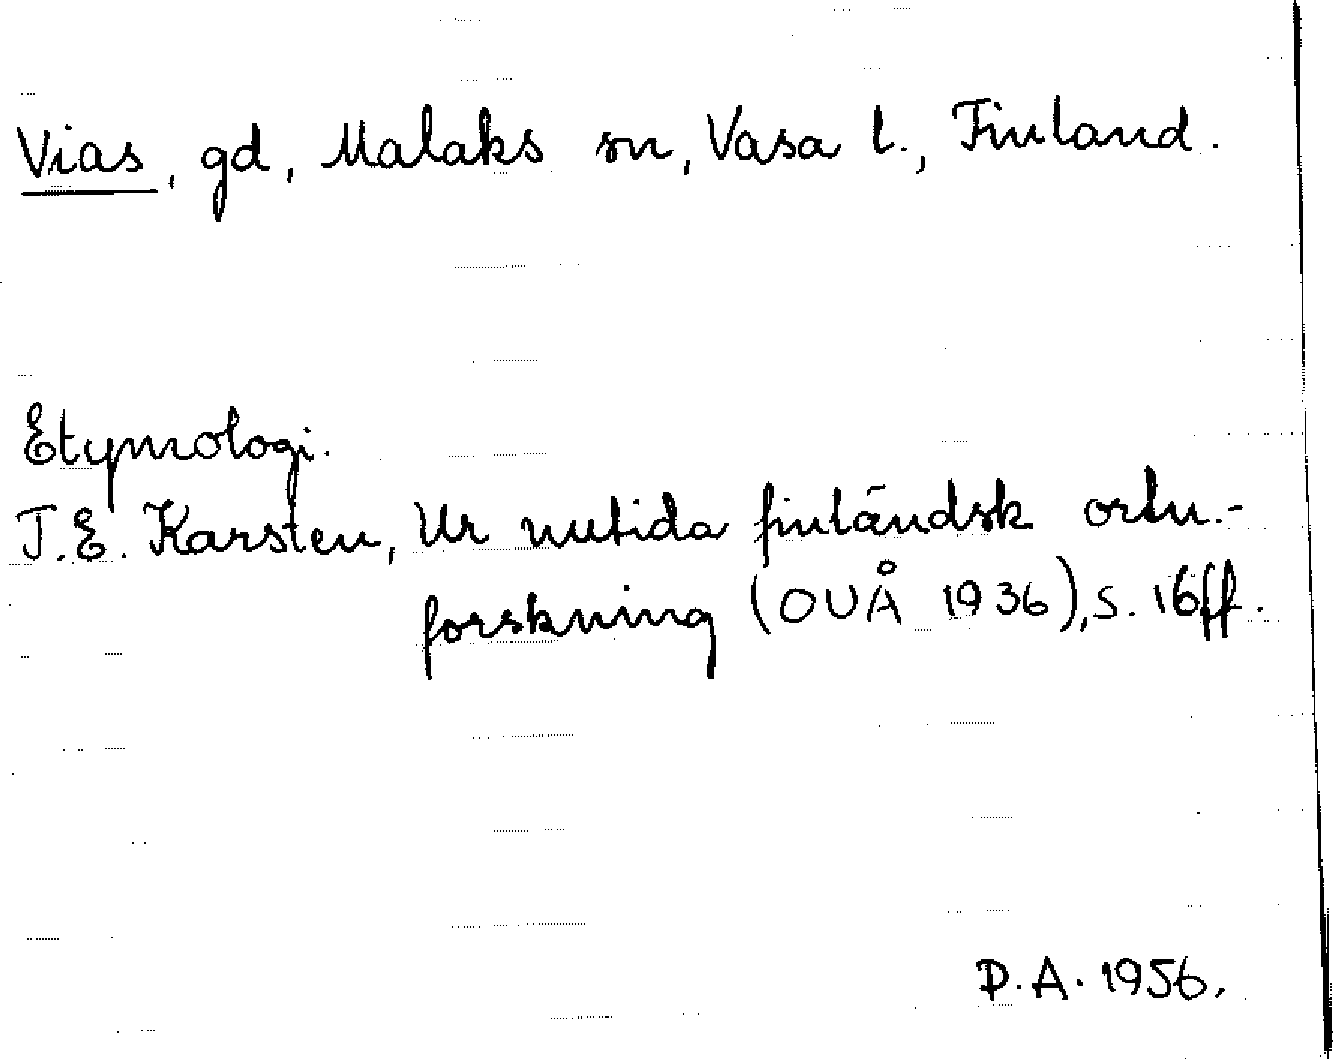 Vias, gd, Malaks sn, Vasa l., Finland.
Etymologi.
T.E. Karsten, Ur nutida finländsk ortn.-
forskning (OUÅ 1936), s. 16ff.
P.A. 1956.